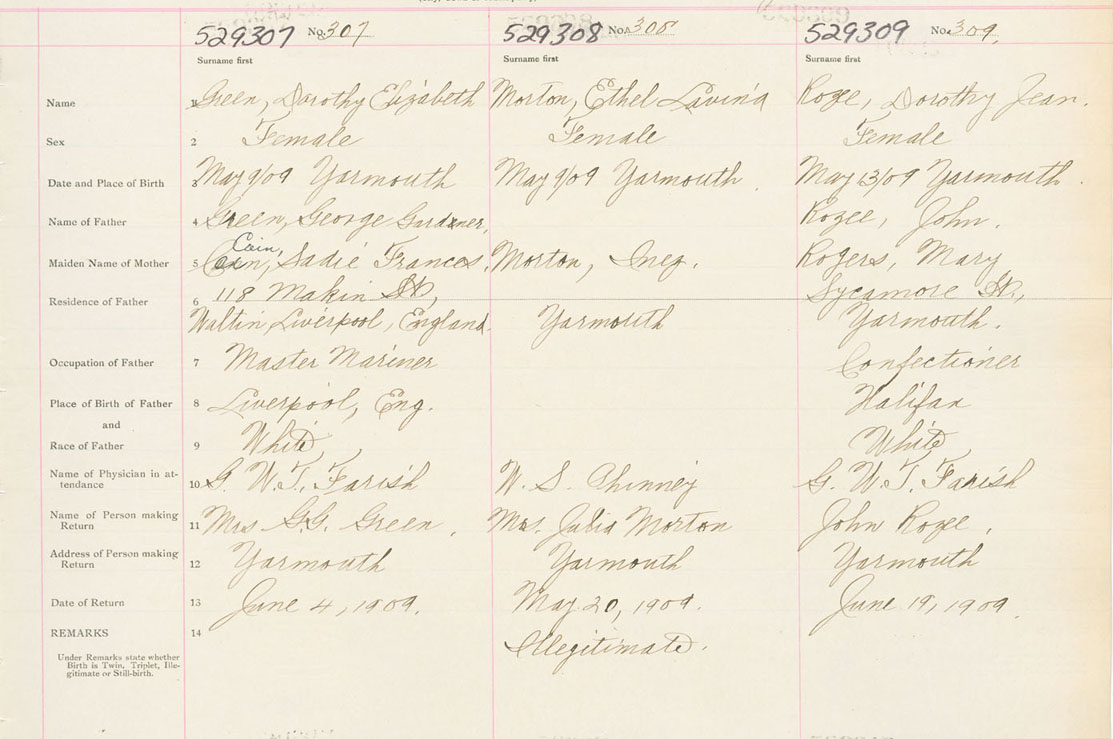 529307 No. 307 529308 No. 308 529309 No. 309.
Surname first Surname first Surname first
Name 1 Green, Dorothy Elizabeth Morton, Ethel Lavina Rozee, Dorothy Jean.
Sex 2 Female Female Female
Date and Place of Birth 3 May 9/09 Yarmouth May 9/09 Yarmouth. May 13/09 Yarmouth.
Name of Father 4 Green, George Gardner, Rozee, John.
Cain,
Maiden Name of Mother 5 Sadie Frances. Morton, Inez. Rogers, Mary
Residence of Father 6 118 Makin St, Sycamore St.,
Waltin Liverpool, England. Yarmouth Yarmouth.
Occupation of Father 7 Master Mariner Confectioner
Place of Birth of Father 8 Liverpool, Eng. Halifax
and
Race of Father 9 White White
Name of Physician in at-
tendance 10 G. W. T. Farish W. S. Phinney G. W. T. Farish
Name of Person making
Return 11 Mrs. G.G. Green. Mrs. Julia Morton John Rozee.
Address of Person making
Return 12 Yarmouth Yarmouth Yarmouth
Date of Return 13 June 4, 1909. May 20, 1909. June 19, 1909.
REMARKS 14 Illegitimate.
Under Remarks state whether
Birth is Twin, Triplet, Ille-
gitimate or Still-birth.